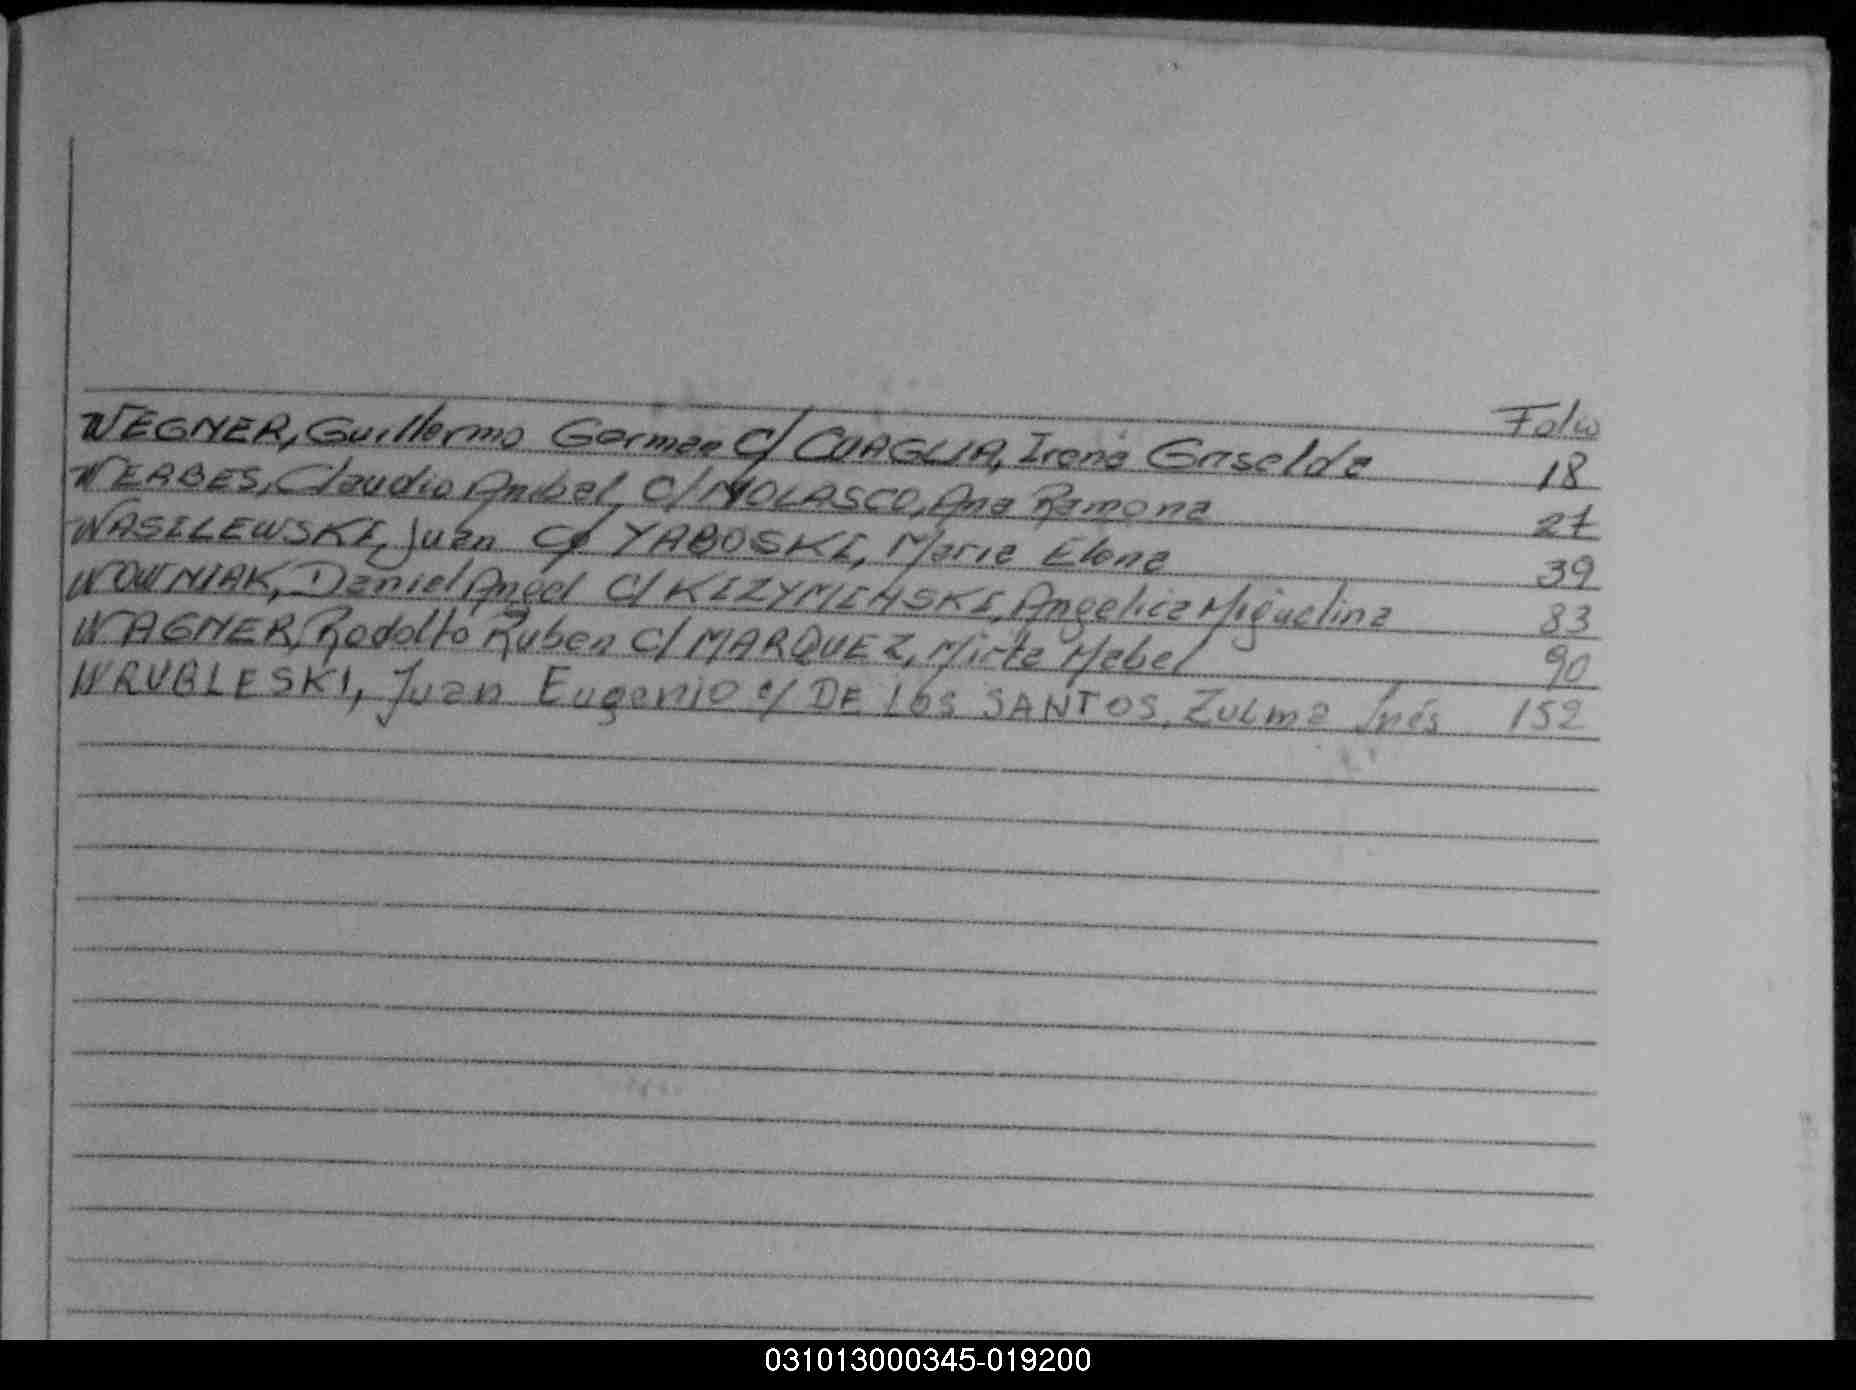 Folio
WEGNER, Guillermo German C/ CUAGLIA, Irene Griselda 18
WERBES, Claudio Anibal C/ NOLASCO, Ana Ramona 27
WASILEWSKI, Juan C/ YABOSKI, Maria Elena 39
WOWNIAK, Daniel Angel C/ Angelica Miguelina 83
WAGNER, Rodolfo Ruben C/ MARQUEZ, Mirta Mabel 90
WRUBLESKI, Juan Eugenio c/ DE LOS SANTOS, Zulma Inés 152
031013000345-019200